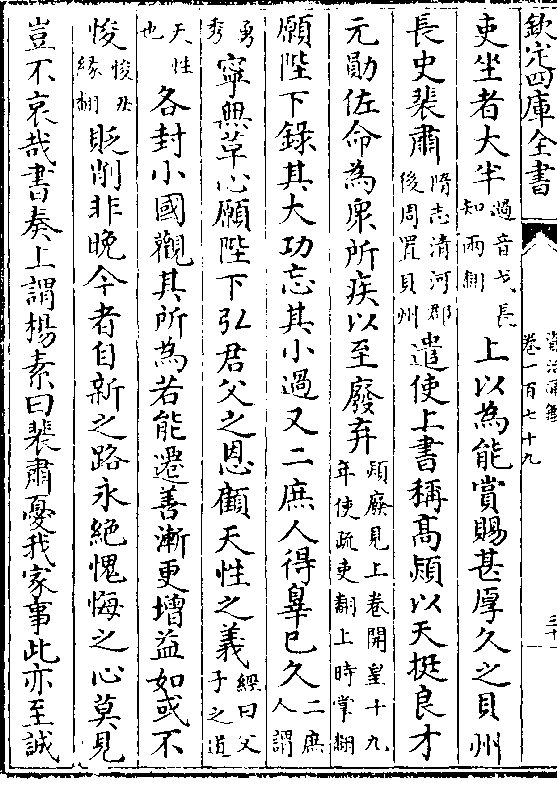 欽定四庫全書
卷一百七十九
吏坐者大半過音戈長知兩翻上以為能賞賜甚厚久之貝州
長史裴肅隋志清河郡後周置貝州遣使上書稱高熲以天挺良才
元勛佐命為衆所疾以至廢弃熲廢見上卷開皇十九年使疏吏翻上時掌翻
願陛下録其大功忘其小過又二庶人得辠已久二庶人謂勇秀
寧無革心願陛下弘君父之恩顧天性之義經曰父子之道天性也
各封小國觀其所為若能遷善漸更增益如或不
悛悛丑緣翻貶削非晚今者自新之路永絶愧悔之心莫見
豈不哀哉書奏上謂楊素曰裴肅憂我家事此亦至誠